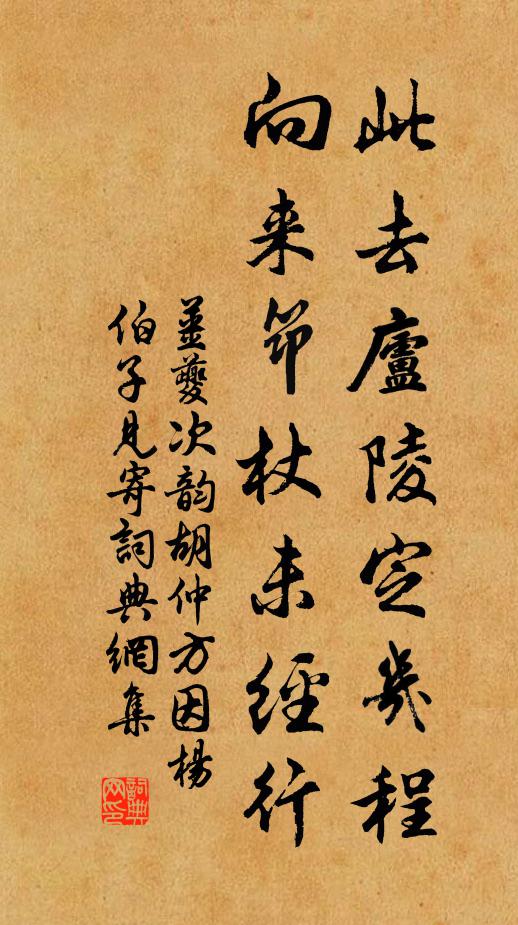 此去廬陵定幾程
向来笻杖未經行
姜夔次韵胡仲方因楊
伯子見寄詞典網集
詞典网印